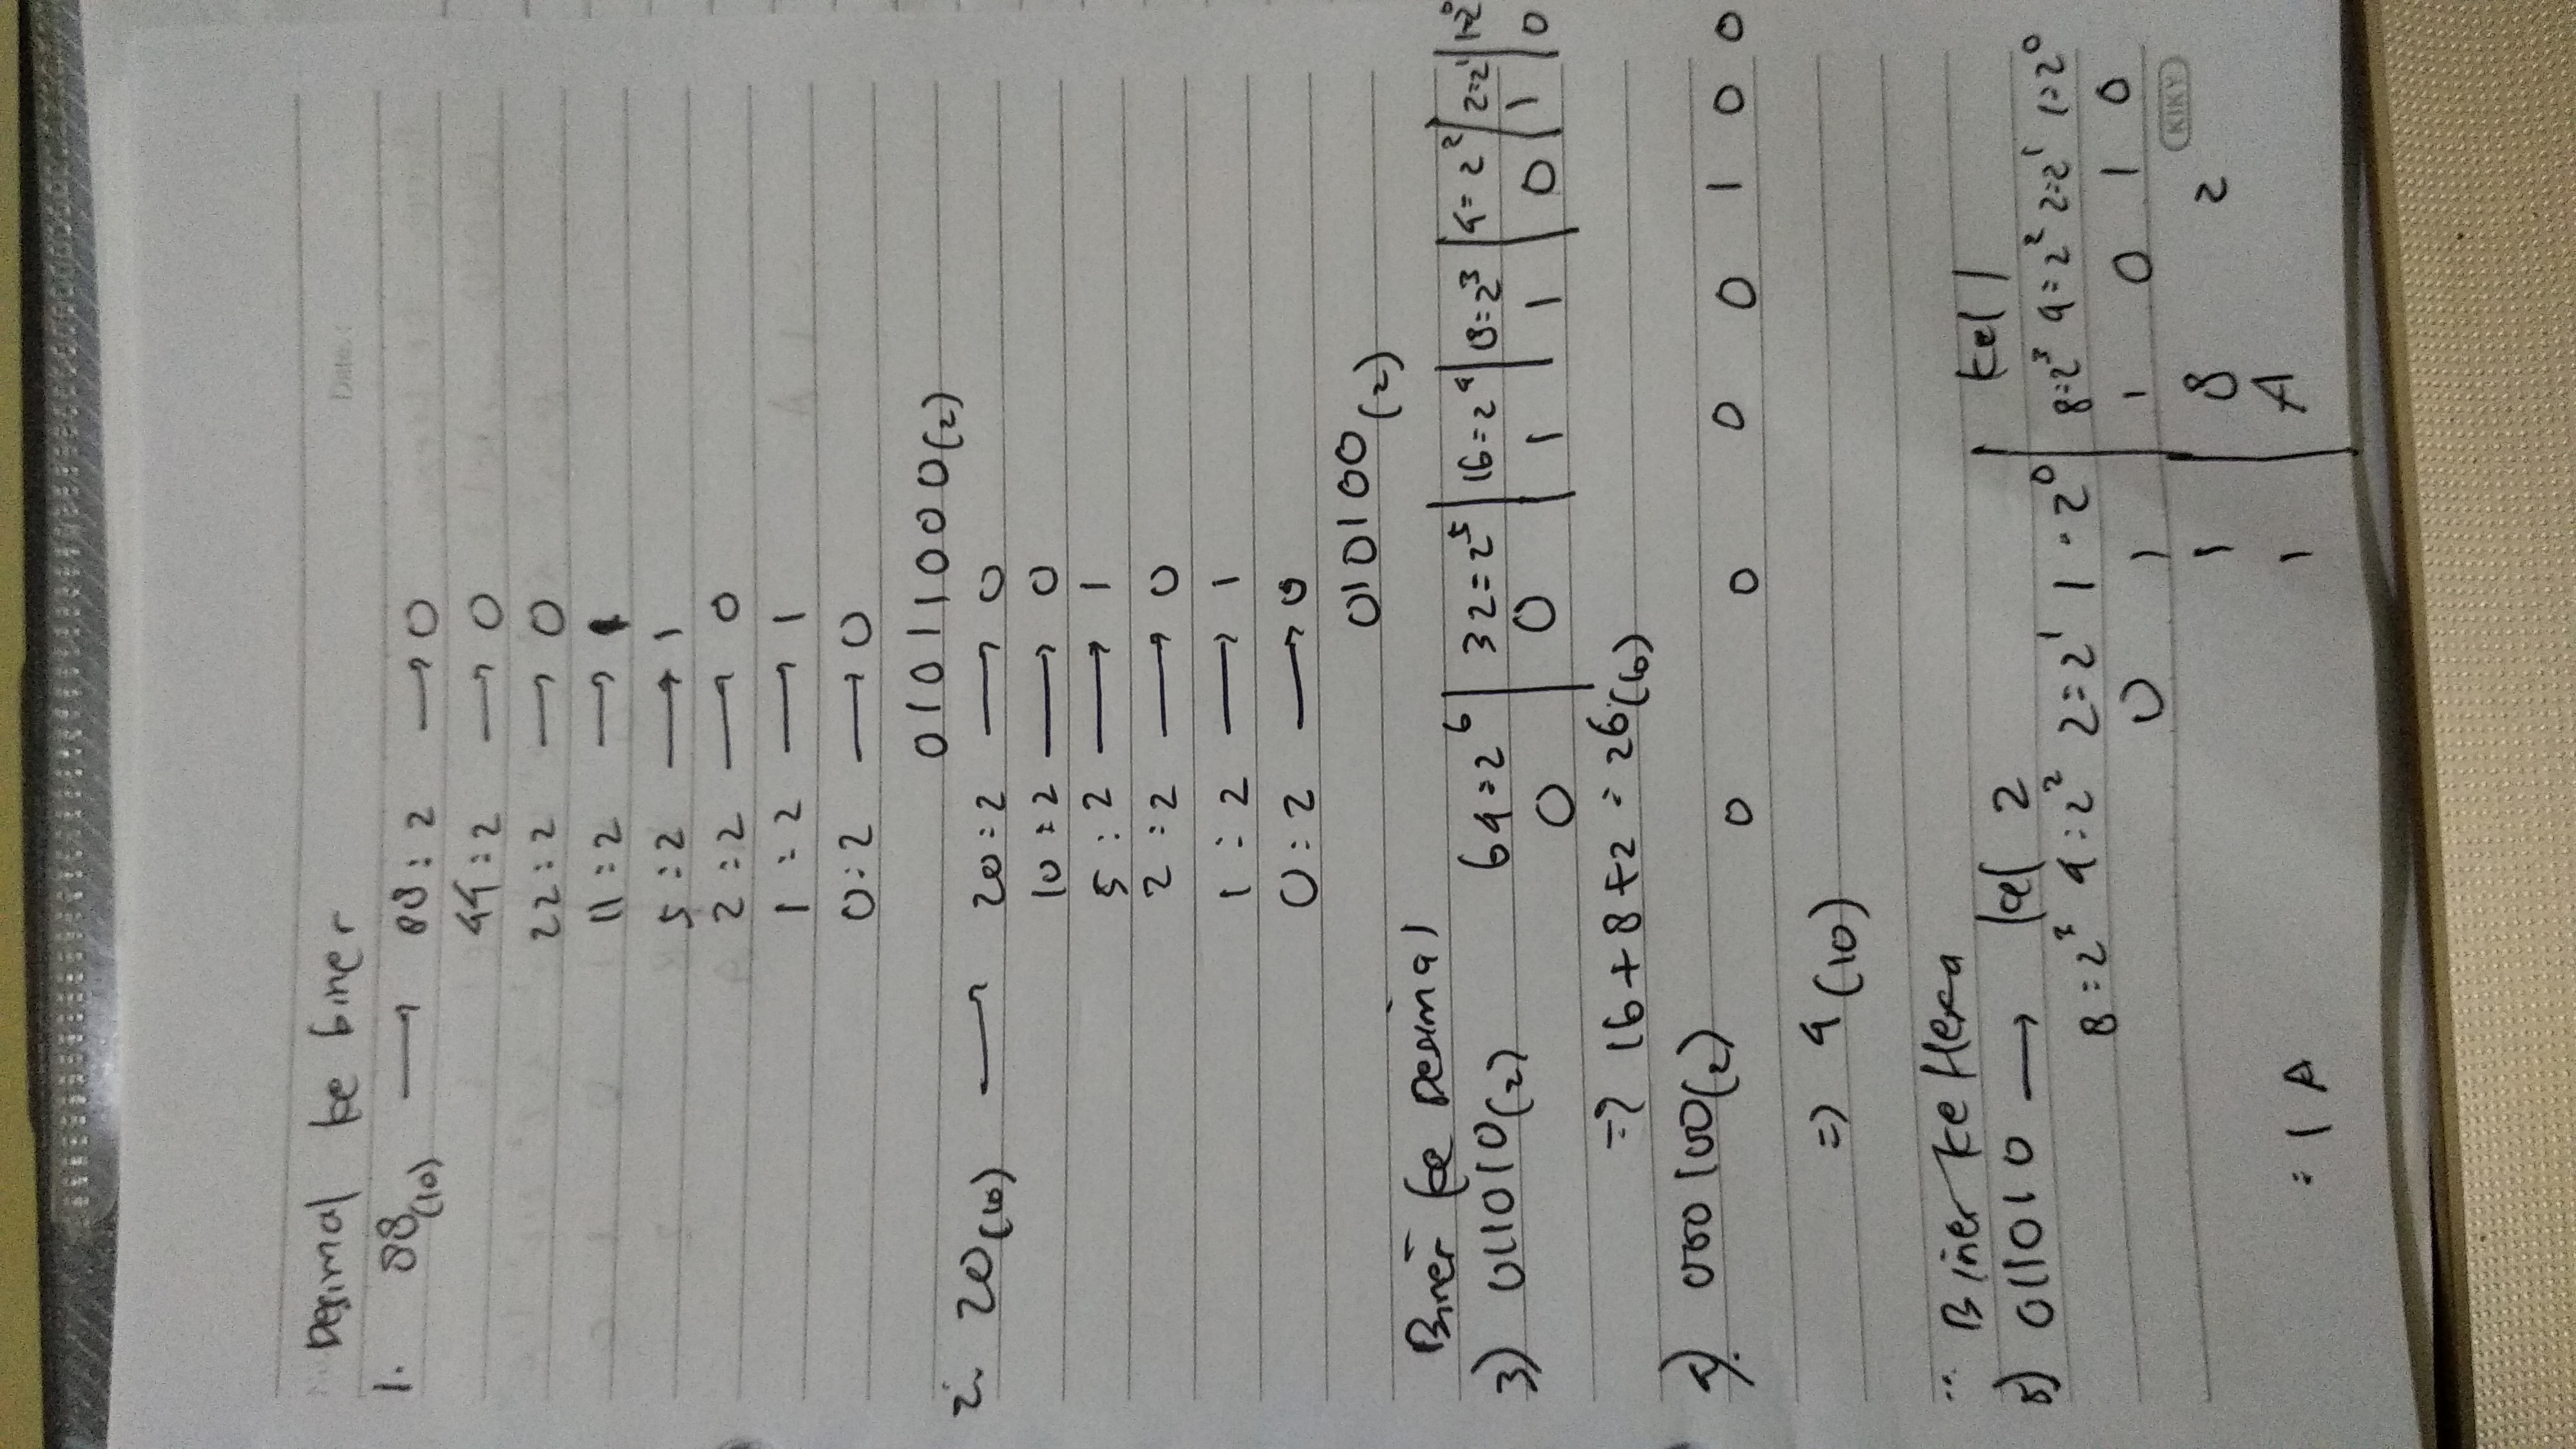 Date :
Desimal ke biner
1. 88(10) → 88 : 2 → 0
44 : 2 → 0
22 : 2 → 0
11 : 2 → 1
5 : 2 → 1
2 : 2 → 0
1 : 2 → 1
0 : 2 → 0
01011000(2)
2. 20(10) → 20 : 2 → 0
10 : 2 → 0
5 : 2 → 1
2 : 2 → 0
1 : 2 → 1
0 : 2 → 0
010100(2)
Biner ke Desimal
3) 011010(2) 64=2⁶ | 32=2⁵ | 16=2⁴ | 8=2³ | 4=2² | 2=2¹ | 1=2⁰
0 | 0 | 1 | 1 | 0 | 1 | 0
=> 16+8+2 = 26(10)
4) 000100(2) 0 0 0 0 1 0 0
=> 4(10)
Biner ke Hexa
5) 011010 → kel 2 | kel 1
8=2³ 4=2² 2=2¹ 1=2⁰ | 8=2³ 4=2² 2=2¹ 1=2⁰
0 1 | 1 0 1 0
KIKY
1 | 8 2
= 1 A 1 | A